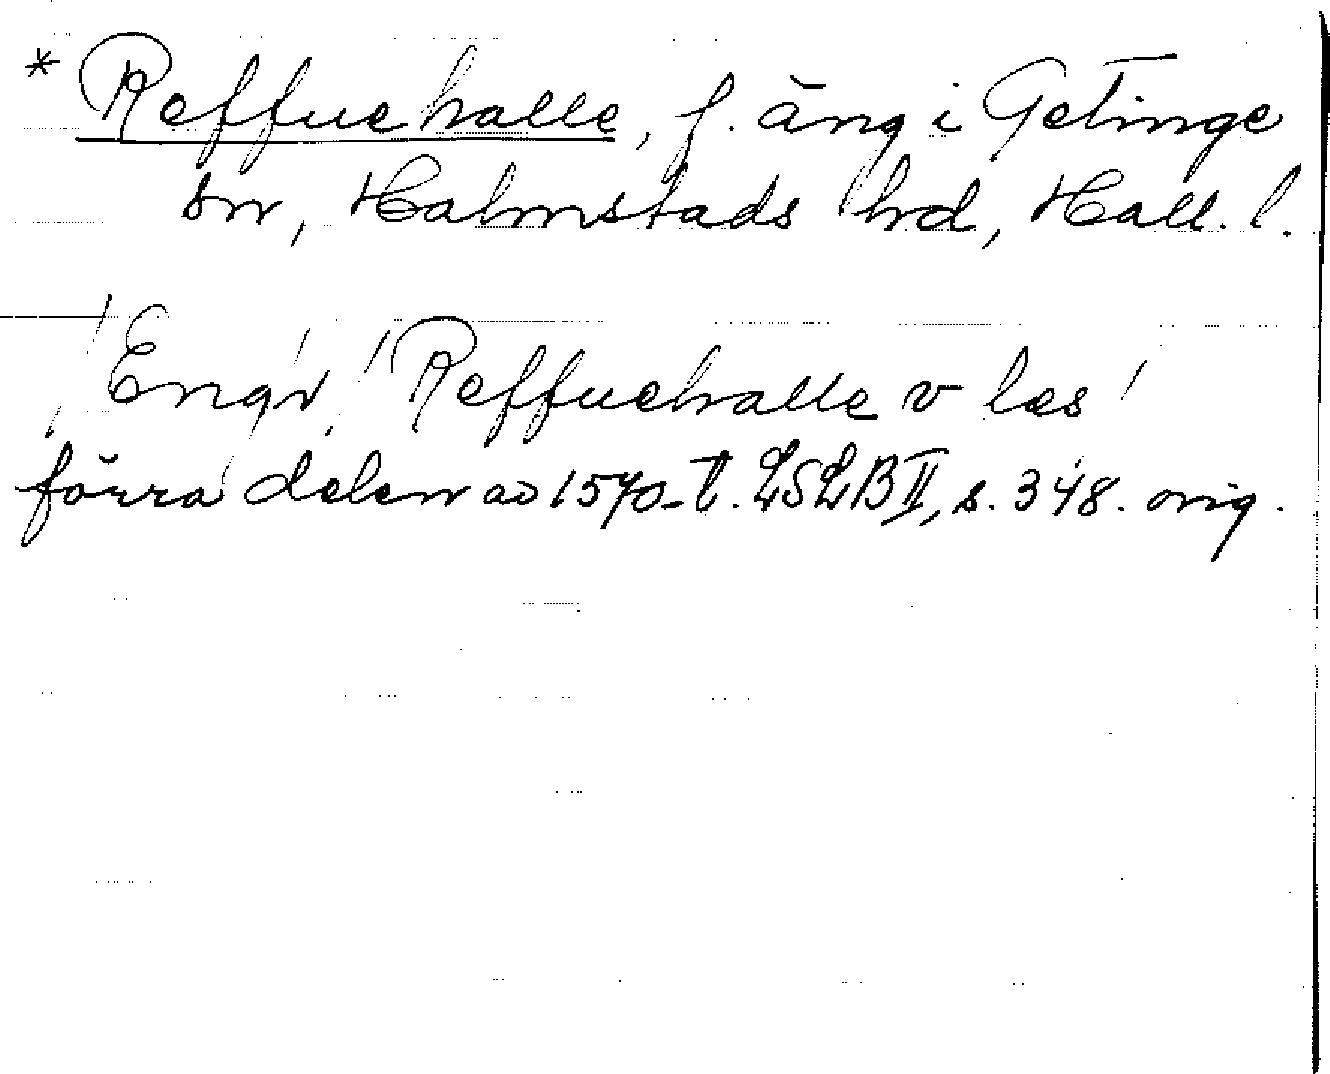 * Reffuehalle, f. äng i Getinge
sn, Halmstads hrd, Hall. l.
"Engr" "Reffuehalle v læs"
förra delen av 1570-t. LSLB II, s. 348. orig.